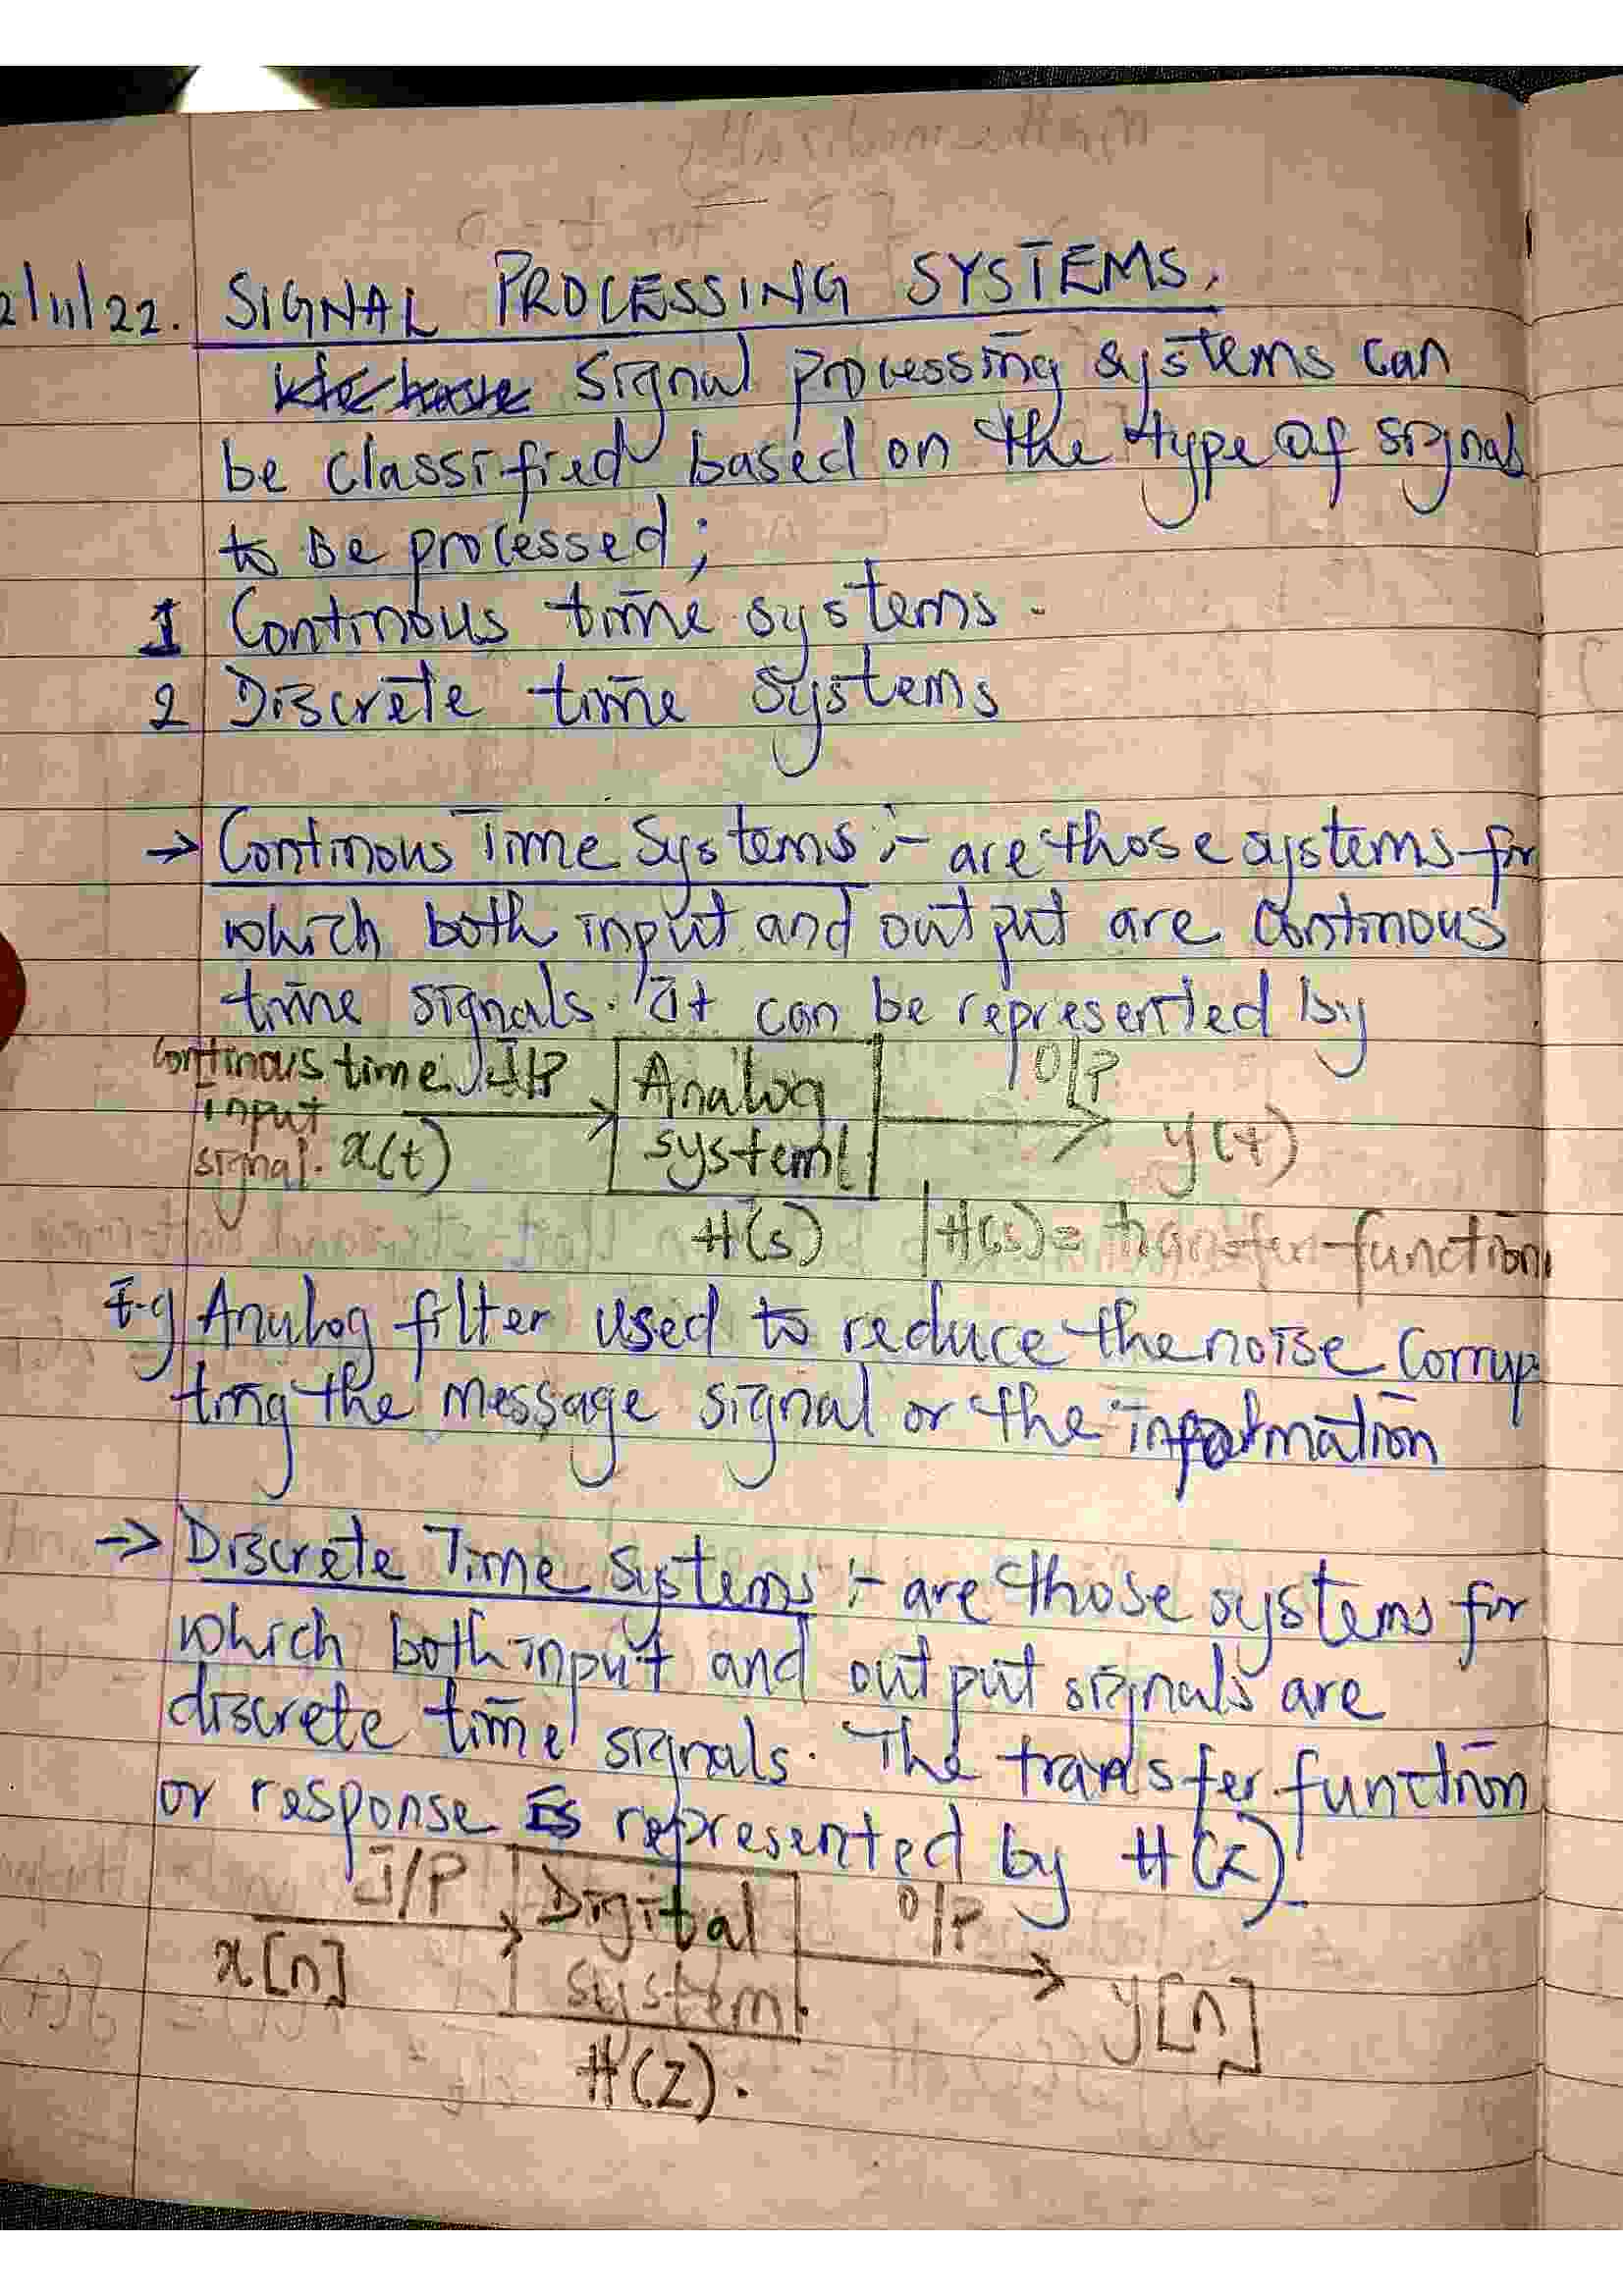 2/11/22. SIGNAL PROCESSING SYSTEMS.
Signal processing systems can
be classified based on the type of signal
to be processed;
1 Continous time systems.
2 Discrete time systems
→ Continous Time Systems :- are those systems for
which both input and output are continous
time signals. It can be represented by
continous time I/P Analog O/P
input
signal. x(t) system y(t)
H(s) H(s) = transfer function
E.g Analog filter used to reduce the noise corrup
ting the message signal or the information
→ Discrete Time Systems :- are those systems for
which both input and output signals are
discrete time signals. The transfer function
or response is represented by H(z)
I/P Digital O/P
x[n] system y[n]
H(z).